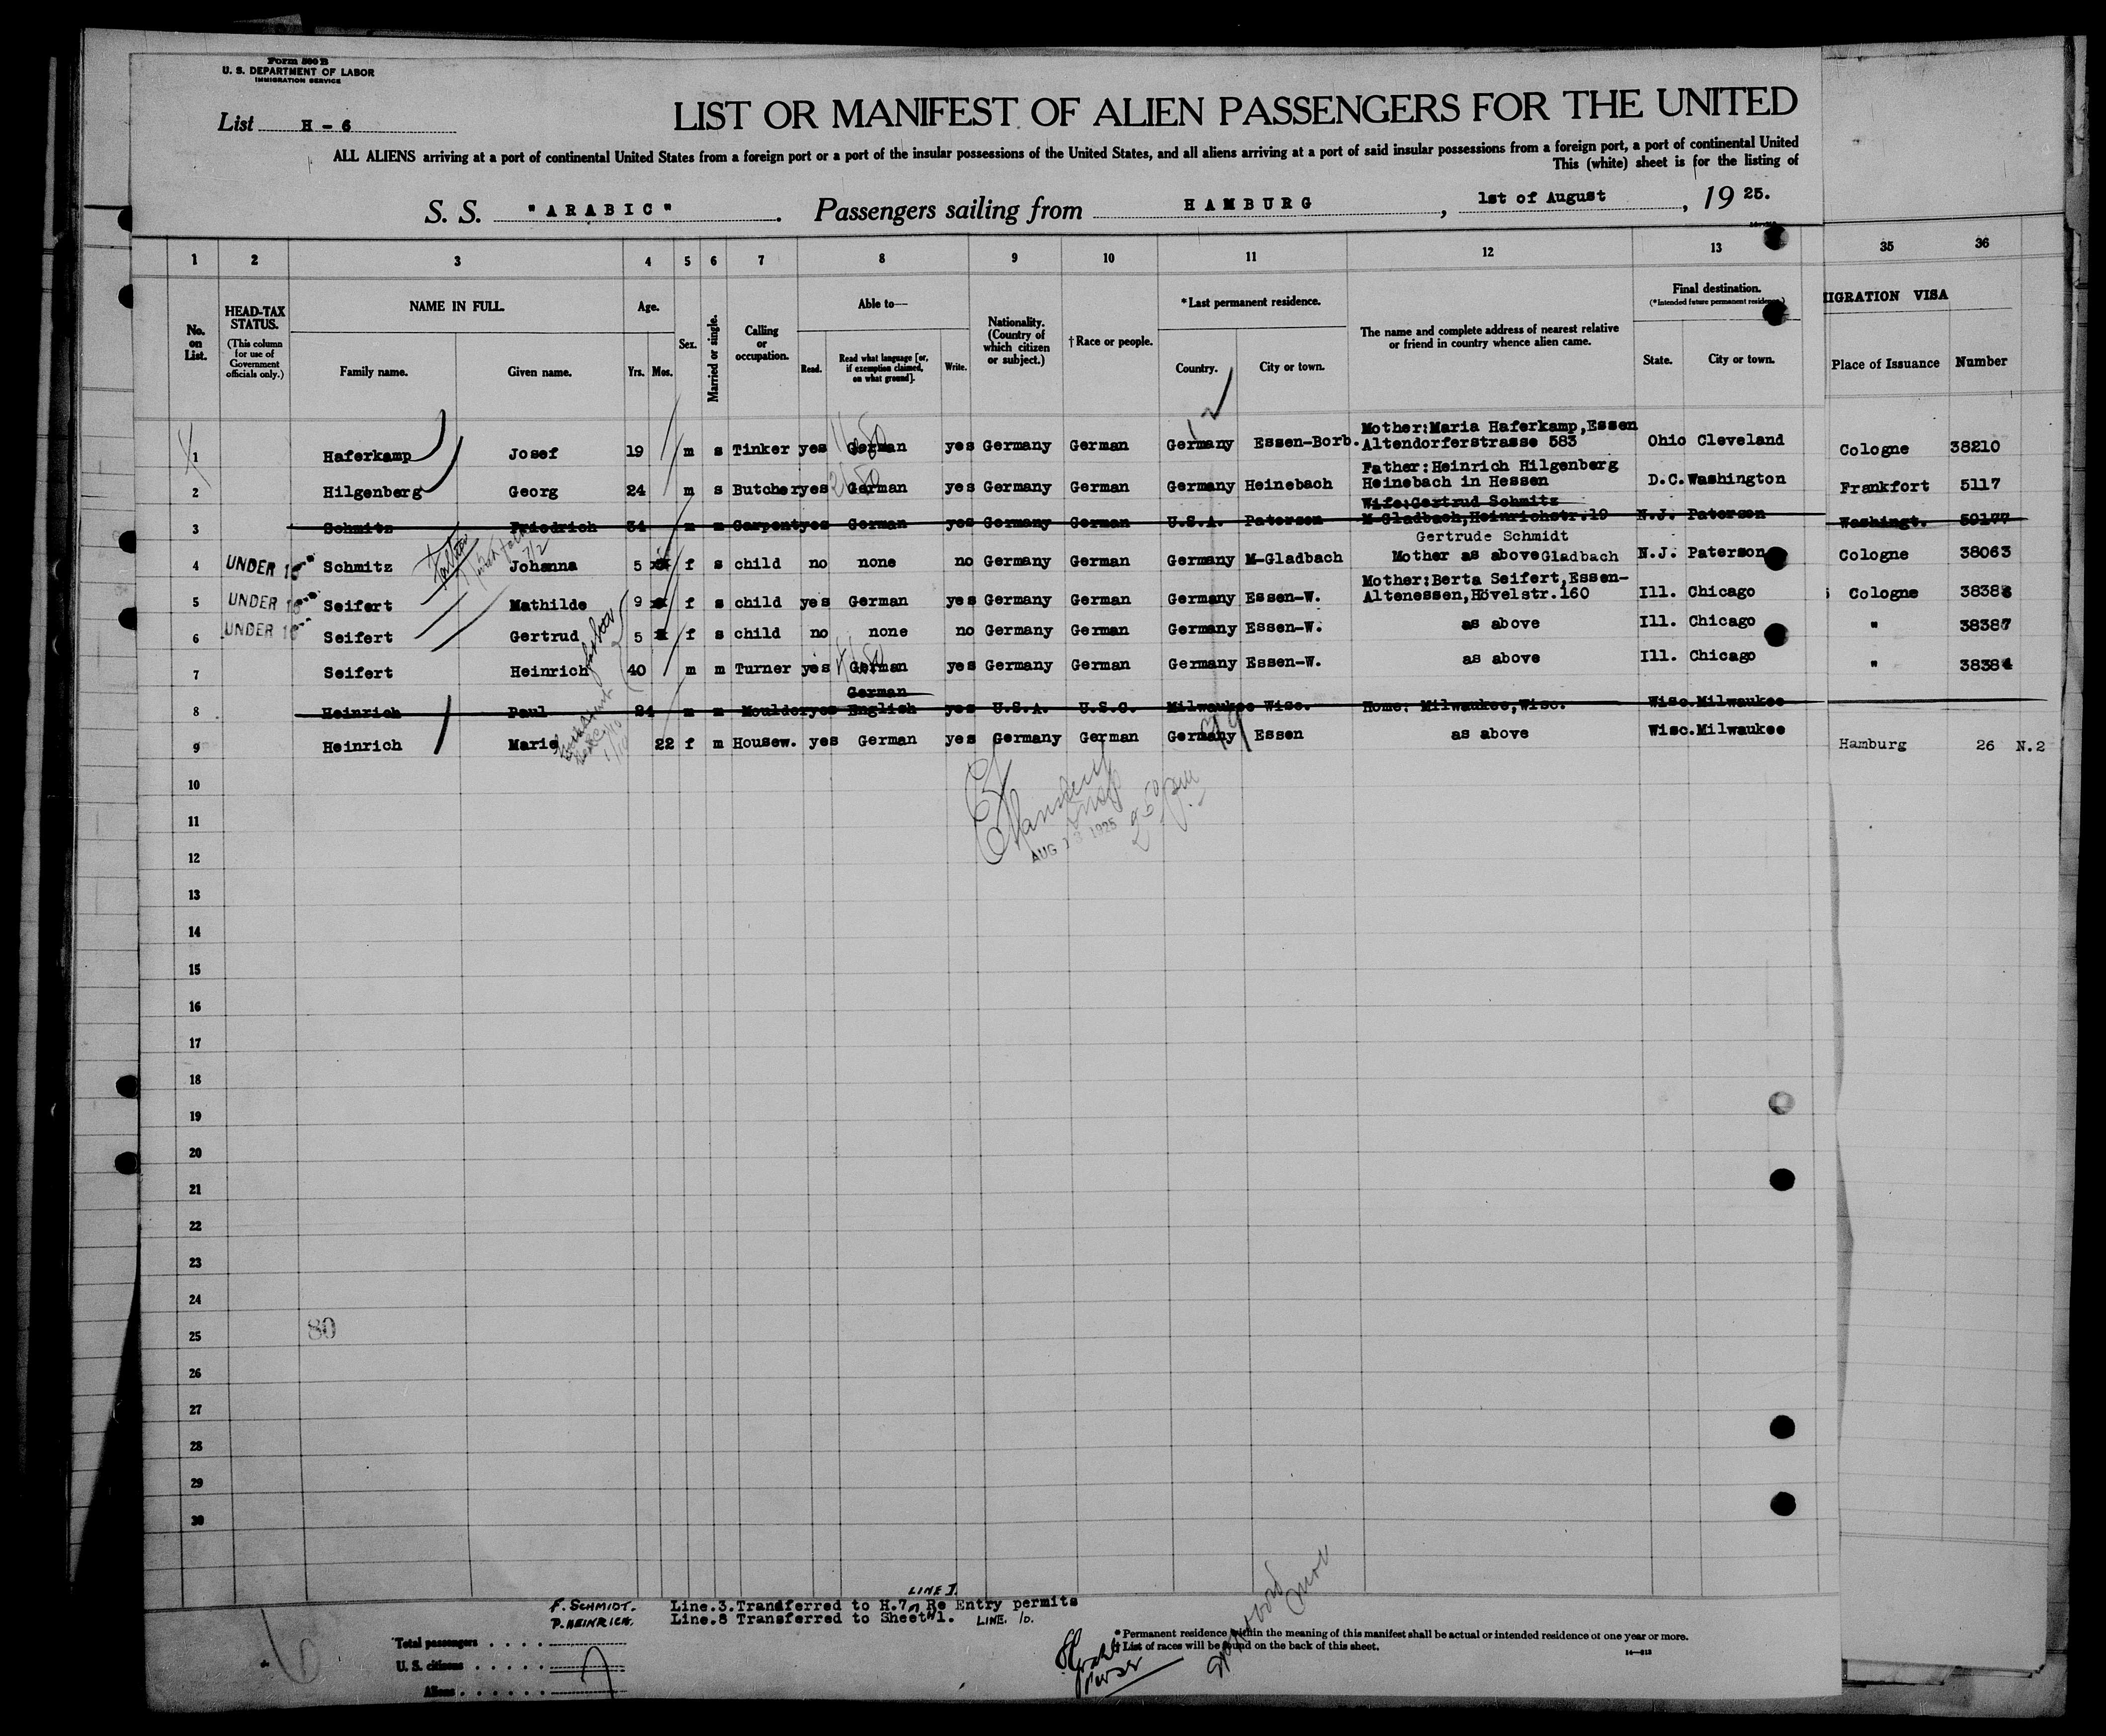 Form 500 B
U. S. DEPARTMENT OF LABOR
IMMIGRATION SERVICE
List H - 6
LIST OR MANIFEST OF ALIEN PASSENGERS FOR THE UNITED
ALL ALIENS arriving at a port of continental United States from a foreign port or a port of the insular possessions of the United States, and all aliens arriving at a port of said insular possessions from a foreign port, a port of continental United
This (white) sheet is for the listing of
S. S. "ARABIC". Passengers sailing from HAMBURG, 1st of August, 19 25.
1 2 3 4 5 6 7 8 9 10 11 12 13 35 36
No. on List.
HEAD-TAX STATUS. (This column for use of Government officials only.)
NAME IN FULL.
Family name. Given name.
Age.
Yrs. Mos.
Sex.
Married or single.
Calling or occupation.
Able to—
Read. Read what language [or, if exemption claimed, on what ground]. Write.
Nationality. (Country of which citizen or subject.)
†Race or people.
*Last permanent residence.
Country. City or town.
The name and complete address of nearest relative or friend in country whence alien came.
Final destination. (*Intended future permanent residence.)
State. City or town.
IGRATION VISA
Place of Issuance Number
1 Haferkamp Josef 19 m s Tinker yes German yes Germany German Germany Essen-Borb. Mother:Maria Haferkamp,Essen Altendorferstrasse 583 Ohio Cleveland Cologne 38210
2 Hilgenberg Georg 24 m s Butcher yes German yes Germany German Germany Heinebach Father:Heinrich Hilgenberg Heinebach in Hessen D.C. Washington Frankfort 5117
3 Schmitz Friedrich 34 m m Carpent yes German yes Germany German U.S.A. Paterson Wife:Gertrud Schmitz M-Gladbach,Heinrichstr.19 N.J. Paterson Washingt. 59177
4 UNDER 16 Schmitz Johanna 5 f s child no none no Germany German Germany M-Gladbach Gertrude Schmidt Mother as above Gladbach N.J. Paterson Cologne 38063
5 UNDER 16 Seifert Mathilde 9 f s child yes German yes Germany German Germany Essen-W. Mother:Berta Seifert,Essen-Altenessen,Hövelstr.160 Ill. Chicago Cologne
6 UNDER 16 Seifert Gertrud 5 f s child no none no Germany German Germany Essen-W. as above Ill. Chicago " 38387
7 Seifert Heinrich 40 m m Turner yes German yes Germany German Germany Essen-W. as above Ill. Chicago " 38384
8 Heinrich Paul 24 m m Moulder yes German English yes U.S.A. U.S.C. Milwaukee Wisc. Home: Milwaukee,Wisc. Wisc. Milwaukee
9 Heinrich Marie 22 f m Housew. yes German yes Germany German Germany Essen as above Wisc. Milwaukee Hamburg 26 N.2
10
AUG 13 1925
11
12
13
14
15
16
17
18
19
20
21
22
23
24
25 80
26
27
28
29
30
LINE 1.
F. SCHMIDT. Line.3.Transferred to H.7, Re Entry permits
P. HEINRICH. Line.8 Transferred to Sheet 1. LINE. 10.
Total passengers
U. S. citizens
Aliens
6
* Permanent residence within the meaning of this manifest shall be actual or intended residence of one year or more.
† List of races will be found on the back of this sheet.